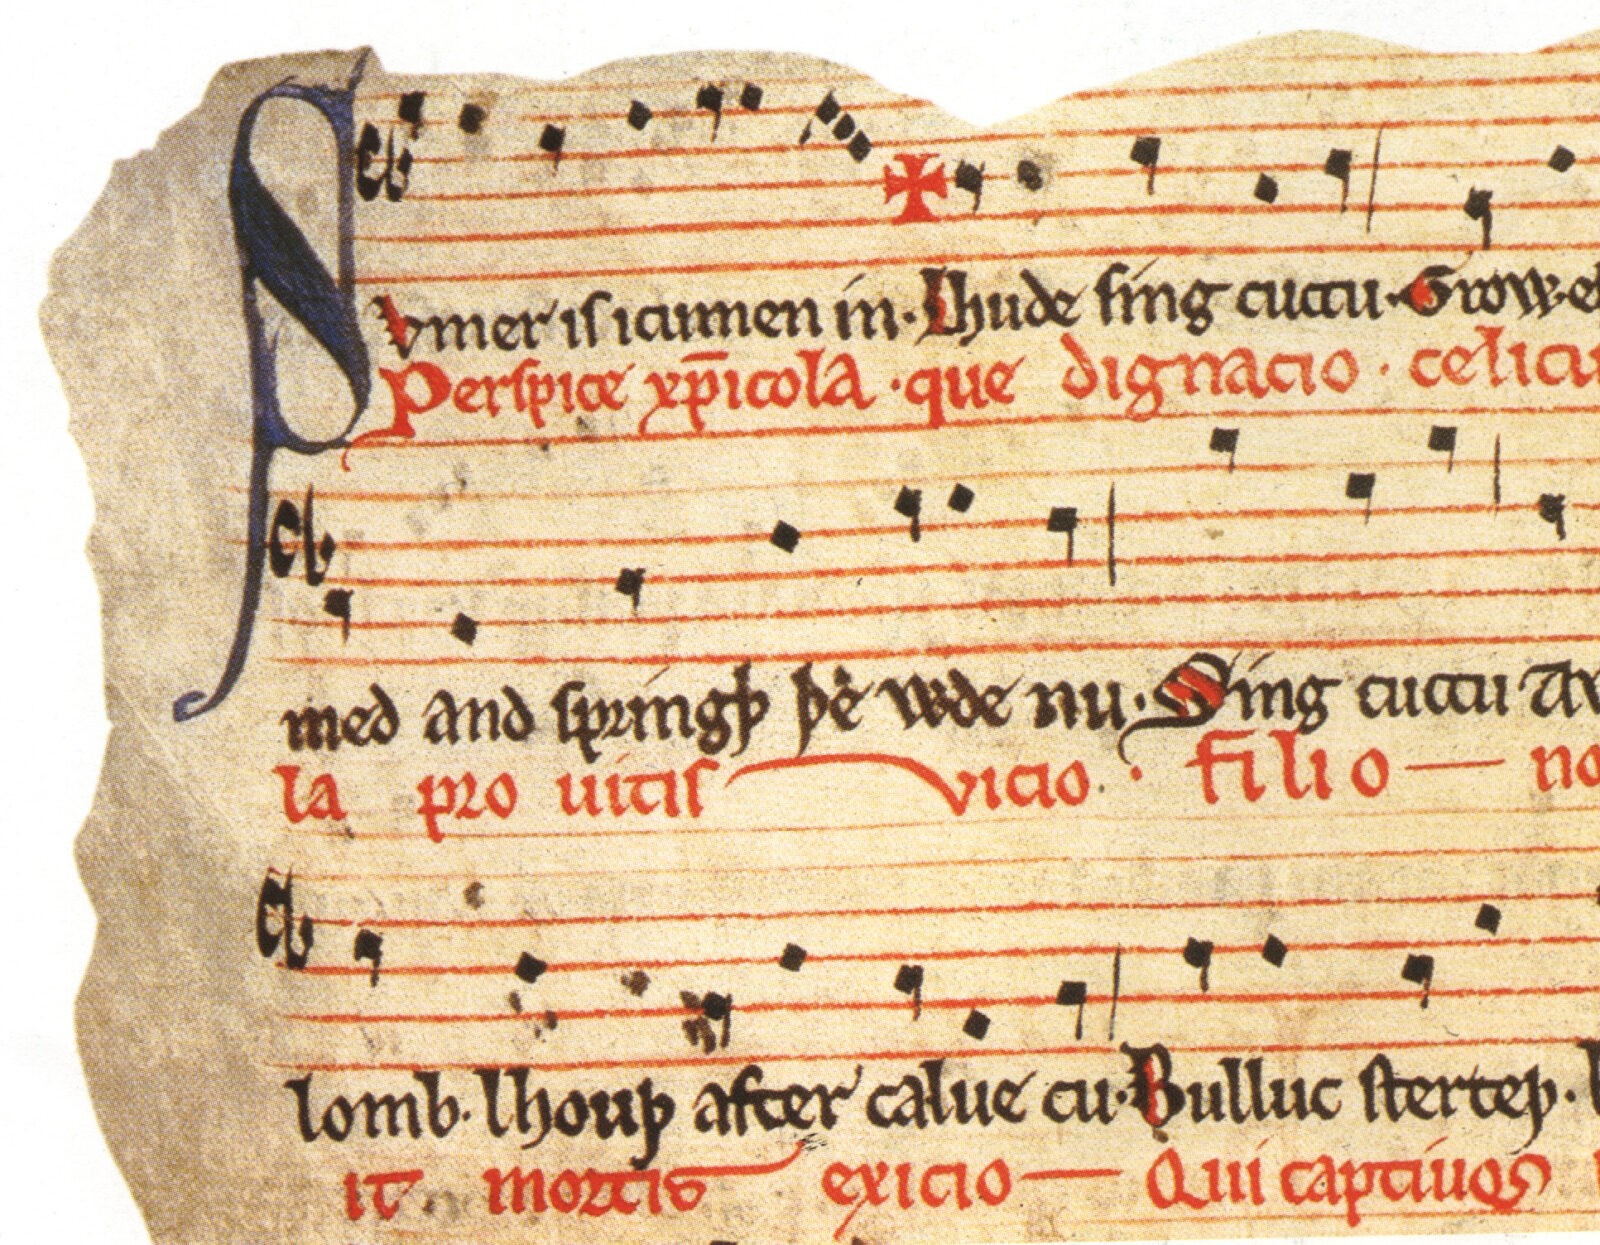 Svmer is icumen in· Lhude sing cuccu· Growe
Perspice xp̄icola ·que dignacio · celicu
med and springþ þe wde nu· Sing cuccu
la pro uitis vicio · filio — no
lomb· lhouþ after calue cu· Bulluc sterteþ·
it mortis exicio — Qui captiuos